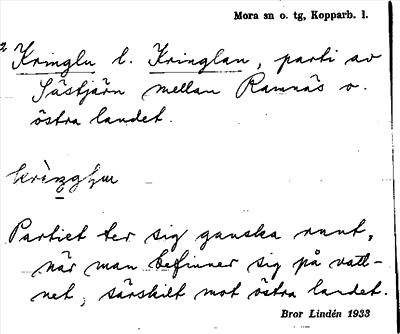 Mora sn o. tg, Kopparb. l.
2 Kringlu l. Kringlan, parti av
Sästjärn mellan Ramnäs o.
östra landet.
Partiet ter sig ganska runt,
när man befinner sig på vatt-
net, särskilt mot östra landet.
Bror Lindén 1933